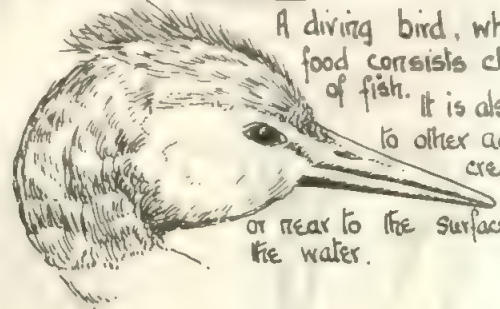 A diving bird, wh
food consists c
of fish.
It is als
to other a
cre
or near to the surfac
the water.